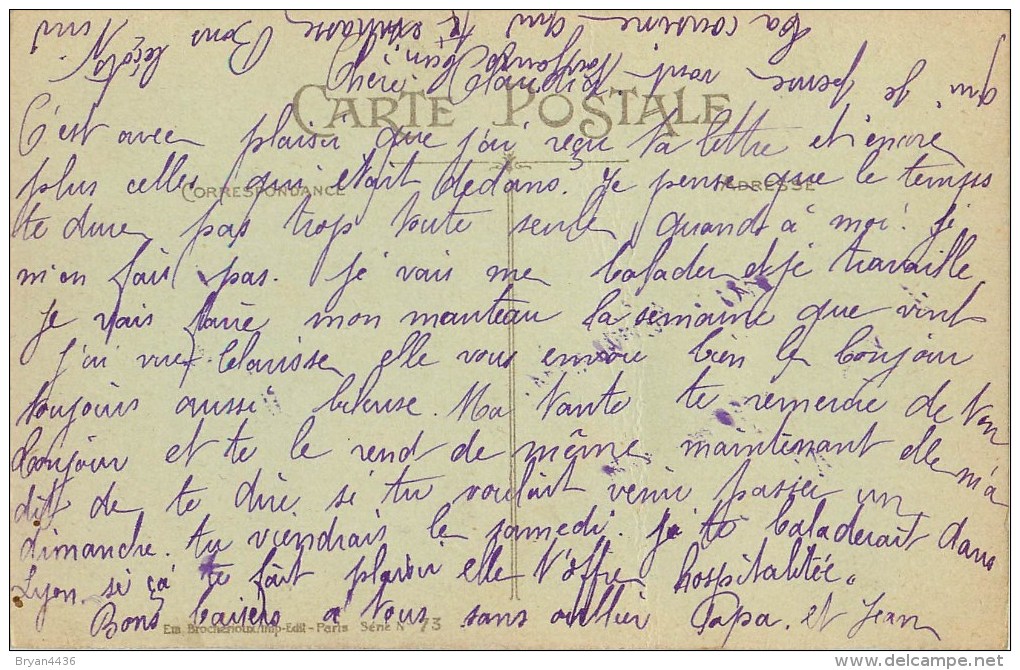 Chère Claudia
CARTE POSTALE
CORRESPONDANCE
ADRESSE
C'est avec plaisir que j'ai reçu ta lettre et encore
plus celles qui était dedans. Je pense que le temps
te dure pas trop toute seule quands à moi! je
m'en fais pas. Je vais me balader et je travaille
Je vais faire mon manteau la semaine que vint
J'ai vue Clarisse elle vous envoie bien le bonjour
toujours aussi. Ma tante te remercie de ton
bonjour et te le rend de même maintenant elle m'a
dit de te dire si tu voulait venir passer un
dimanche. tu viendrais le samedi. je te baladerait dans
Lyon. si ça te fait plaisir elle t'offre hospitalitée.
Bons baisers a tous sans oublier Papa. et Jean
Em. Brocherioux, Imp-Edit - Paris Série N° 73
Ta cousine qui t'embrasse Bons
qui je pense vont toujours bien
Bryan4436
delcampe.net